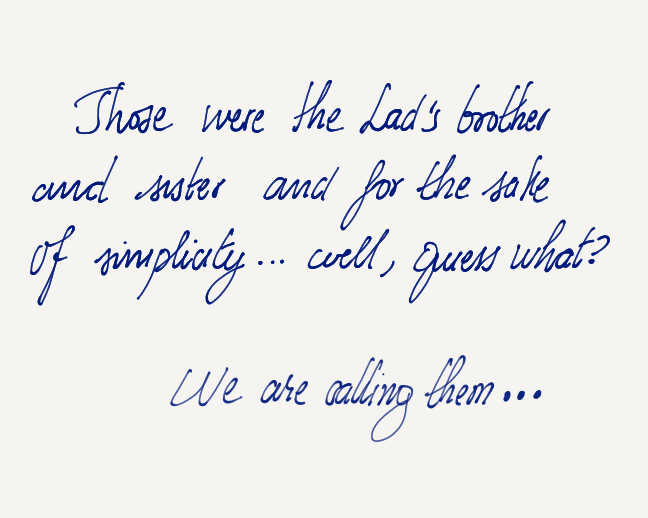 Those were the Lad's brother
and sister and for the sake
of simplicity... well, guess what?
We are calling them...